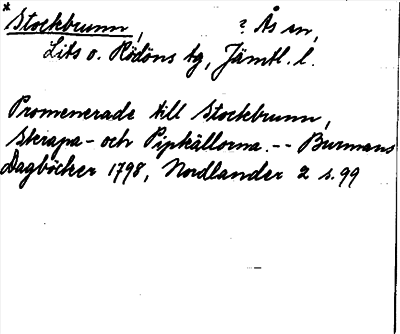 * Stockbrunn, ? Ås sn,
Lits o. Rödöns tg, Jämtl. l.
Promenerade till Stockbrunn,
Skrapa- och Pipkällorna. -- Burmans
Dagböcker 1798, Nordlander 2 s. 99